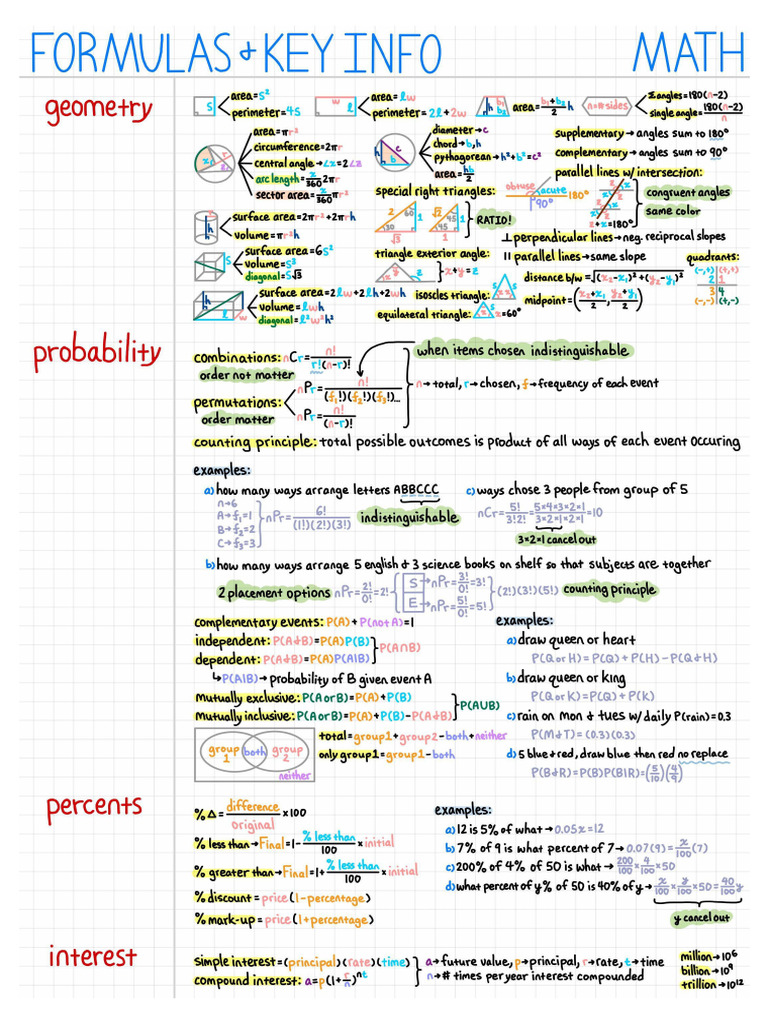 FORMULAS & KEY INFO MATH
geometry
s
area=s²
perimeter=4s
w
l
area=lw
perimeter=2l+2w
h b₁ b₂
area=b₁+b₂/2 h
n=#sides
Σangles=180(n-2)
single angle=180(n-2)/n
area=πr²
circumference=2πr
central angle→∠x=2∠z
arc length=x/360 2πr
sector area=x/360 πr²
diameter→c
chord→b,h
pythagorean→h²+b²=c²
area=hb/2
supplementary→angles sum to 180°
complementary→angles sum to 90°
parallel lines w/intersection:
obtuse acute 180°
90°
z+x=180°
congruent angles
same color
special right triangles:
2 60 1
30
√3
√2 45 1
45
1
RATIO!
surface area=2πr²+2πrh
volume=πr²h
⊥perpendicular lines→neg. reciprocal slopes
surface area=6s²
volume=s³
diagonal=s√3
triangle exterior angle:
x y z
x+y=z
|| parallel lines→same slope
quadrants:
(-,+) (+,+)
2 1
3 4
(-,-) (+,-)
distance b/w=√(x₂-x₁)²+(y₂-y₁)²
surface area=2lw+2lh+2wh
volume=lwh
diagonal=l²w²h²
isoscles triangle:
midpoint=(x₂+x₁/2, y₂+y₁/2)
equilateral triangle: x=60°
probability
combinations: nCr=n!/r!(n-r)!
order not matter
when items chosen indistinguishable
nPr=n!/(f₁!)(f₂!)(f₃!)...
permutations:
order matter
nPr=n!/(n-r)!
n→total, r→chosen, f→frequency of each event
counting principle: total possible outcomes is product of all ways of each event occuring
examples:
a) how many ways arrange letters ABBCCC
n→6
A→f₁=1
B→f₂=2
C→f₃=3
nPr=6!/(1!)(2!)(3!)
indistinguishable
c) ways chose 3 people from group of 5
nCr=5!/3!2!=5×4×3×2×1/3×2×1×2×1=10
3×2×1 cancel out
b) how many ways arrange 5 english & 3 science books on shelf so that subjects are together
2 placement options nPr=2!/0!=2!
S→nPr=3!/0!=3!
E→nPr=5!/0!=5!
(2!)(3!)(5!) counting principle
complementary events: P(A)+P(notA)=1
independent: P(A&B)=P(A)P(B)
dependent: P(A&B)=P(A)P(A|B)
P(A∩B)
↳P(A|B)→probability of B given event A
mutually exclusive: P(AorB)=P(A)+P(B)
mutually inclusive: P(AorB)=P(A)+P(B)-P(A&B)
P(AUB)
group 1 both group 2
neither
total=group1+group2-both+neither
only group1=group1-both
examples:
a) draw queen or heart
P(QorH)=P(Q)+P(H)-P(Q&H)
b) draw queen or king
P(QorK)=P(Q)+P(K)
c) rain on mon & tues w/daily P(rain)=0.3
P(M&T)=(0.3)(0.3)
d) 5 blue 4 red, draw blue then red no replace
P(B&R)=P(B)P(B|R)=(5/10)(4/9)
percents
%Δ=difference/original×100
% less than→Final=1-% less than/100×initial
% greater than→Final=1+% less than/100×initial
% discount=price(1-percentage)
% mark-up=price(1+percentage)
examples:
a) 12 is 5% of what→0.05x=12
b) 7% of 9 is what percent of 7→0.07(9)=x/100(7)
c) 200% of 4% of 50 is what→200/100×4/100×50
d) what percent of y% of 50 is 40% of y→x/100×y/100×50=40/100y
y cancel out
interest
simple interest=(principal)(rate)(time)
compound interest: a=p(1+r/n)ⁿᵗ
a→future value, p→principal, r→rate, t→time
n→# times per year interest compounded
million→10⁶
billion→10⁹
trillion→10¹²